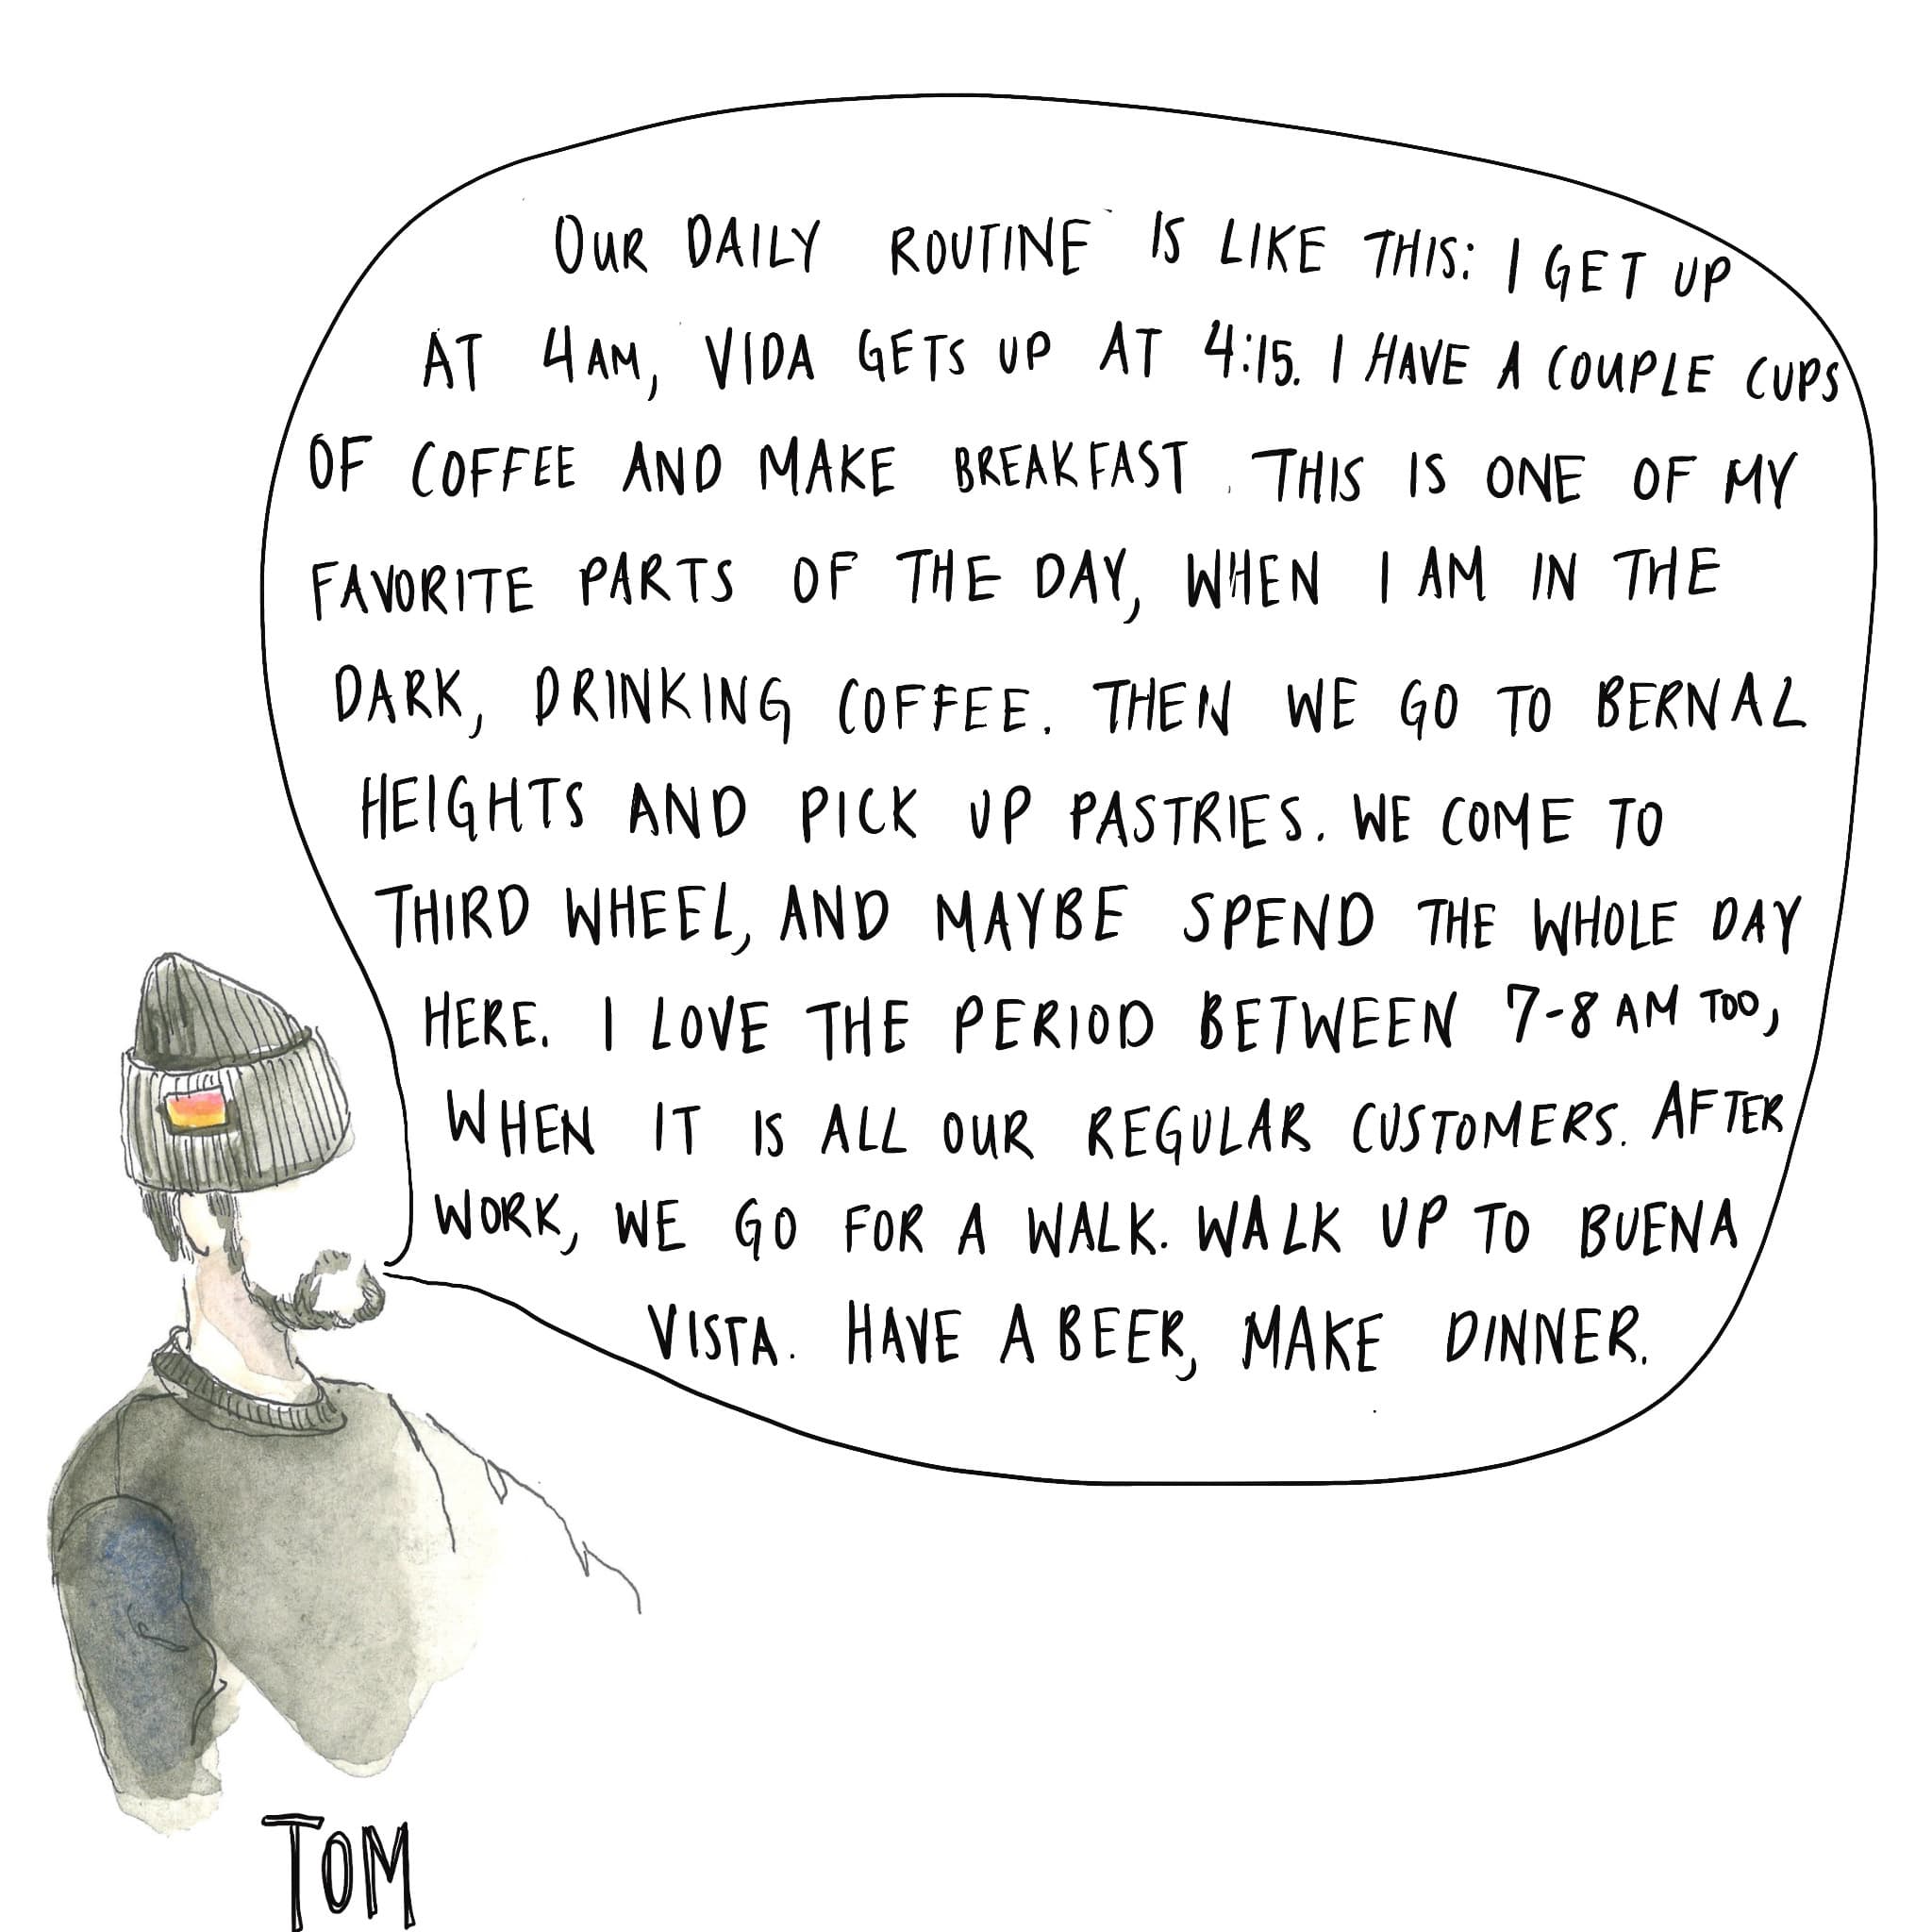 OUR DAILY ROUTINE IS LIKE THIS: I GET UP
AT 4AM, VIDA GETS UP AT 4:15. I HAVE A COUPLE CUPS
OF COFFEE AND MAKE BREAKFAST. THIS IS ONE OF MY
FAVORITE PARTS OF THE DAY, WHEN I AM IN THE
DARK, DRINKING COFFEE. THEN WE GO TO BERNAL
HEIGHTS AND PICK UP PASTRIES. WE COME TO
THIRD WHEEL, AND MAYBE SPEND THE WHOLE DAY
HERE. I LOVE THE PERIOD BETWEEN 7-8 AM TOO,
WHEN IT IS ALL OUR REGULAR CUSTOMERS. AFTER
WORK, WE GO FOR A WALK. WALK UP TO BUENA
VISTA. HAVE A BEER, MAKE DINNER.
TOM